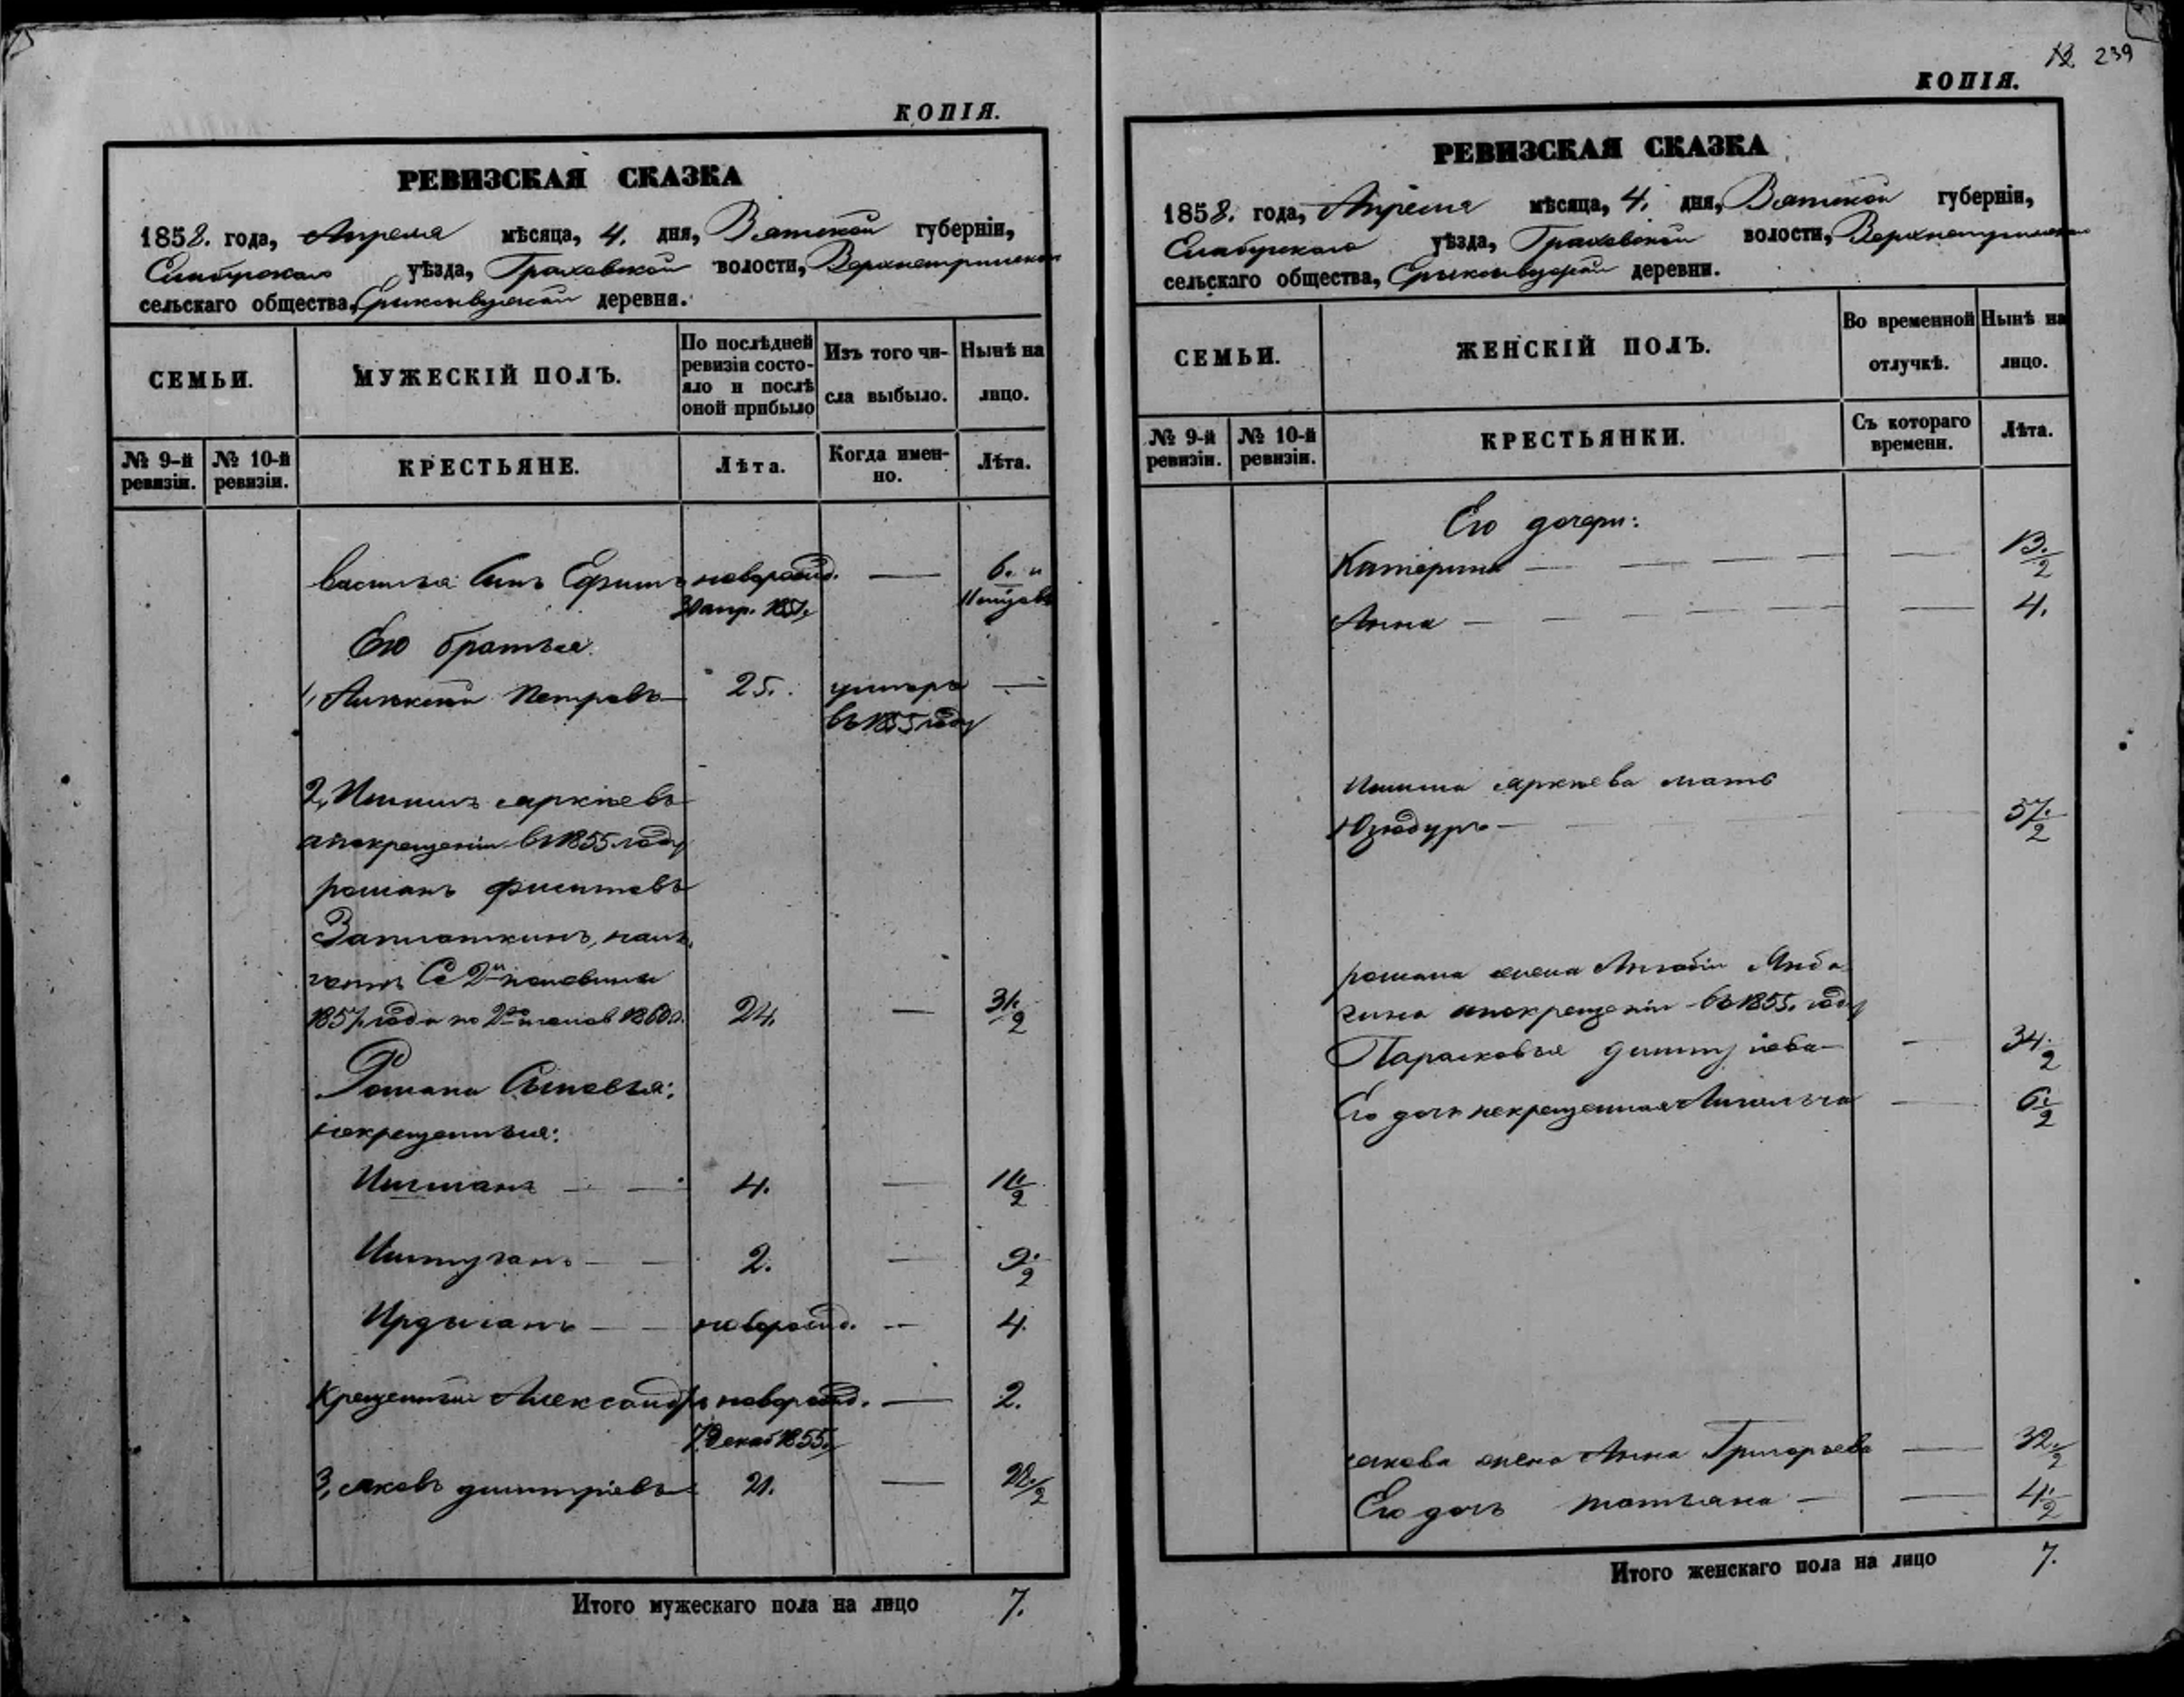 КОПІЯ.
РЕВИЗСКАЯ СКАЗКА
1858. года, Апреля мѣсяца, 4. дня, Вятской губерніи,
Елабужскаго уѣзда, Граховской волости,
сельскаго общества, деревня.
СЕМЬИ.
МУЖЕСКІЙ ПОЛЪ.
По послѣдней ревизіи состояло и послѣ оной прибыло
Изъ того числа выбыло.
Нынѣ на лицо.
№ 9-й ревизіи.
№ 10-й ревизіи.
КРЕСТЬЯНЕ.
Лѣта.
Когда именно.
Лѣта.
Василья Сынъ Ефимъ новорожд. — 6. и
30 апр. 1851. 11 мѣсяцовъ
Его братья:
1, Алексѣй Петровъ — 25. умеръ —
въ 1855 году
2,
а по крещеніи въ 1855 году
романъ
ко 2й половины
1857 года по 2ю полов 1860 г. 24. — 31 1/2
Романа Сыновья:
некрещенные:
Ишманъ — — 4. — 11 1/2
Иштуганъ — — 2. — 9 1/2
— — новорожд. — 4.
Крещеный Александръ новорожд. — 2.
7 Декаб 1855 г.
3, яковъ димитріевъ 21. — 28 1/2
Итого мужескаго пола на лицо 7.
12 239
КОПІЯ.
РЕВИЗСКАЯ СКАЗКА
1858. года, Апреля мѣсяца, 4. дня, Вятской губерніи,
Елабужскаго уѣзда, Граховской волости,
сельскаго общества, деревни.
СЕМЬИ.
ЖЕНСКІЙ ПОЛЪ.
Во временной отлучкѣ.
Нынѣ на лицо.
№ 9-й ревизіи.
№ 10-й ревизіи.
КРЕСТЬЯНКИ.
Съ котораго времени.
Лѣта.
Его дочери:
Катерина — — — — — 13 1/2
Анна — — — — — — 4.
мать
— — — — — 57 1/2
романа жена
а по крещеніи въ 1855. году
Парасковья — 34 1/2
Его дочь некрещенная — 6 1/2
якова жена Анна Григорьева — 32 1/2
Его дочь татьяна — — 4 1/2
Итого женскаго пола на лицо 7.